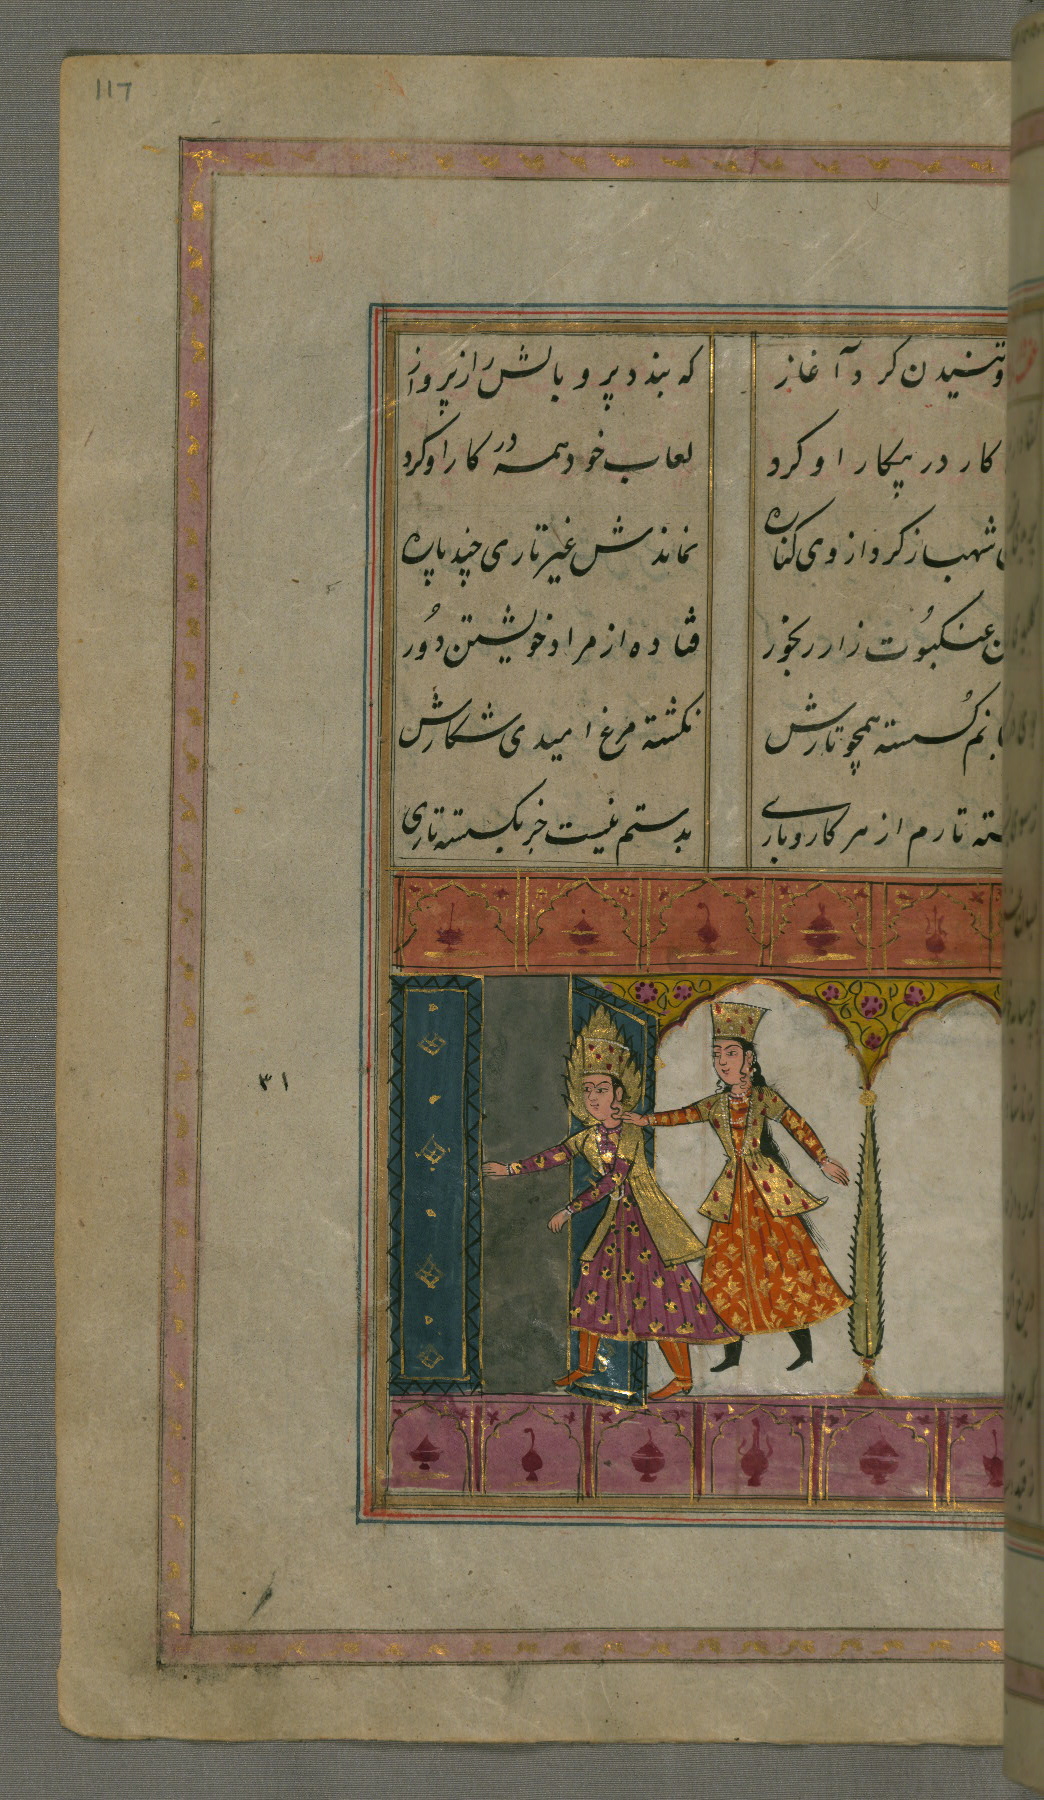 117
تنیدن کرد آغاز
که بندد پر و بالش را ز پرواز
کار در پیکار او کرد
لعاب خود همه در کار او کرد
شهباز کرد از وی کناره
نماندش غیر تاری چند پاره
عنکبوت زار رنجور
فتاده از مراد خویشتن دور
گسسته همچو تارش
نگشته مرغ امیدی شکارش
تارم از هر کار و باری
بدستم نیست جز بگسسته تاری
٣١